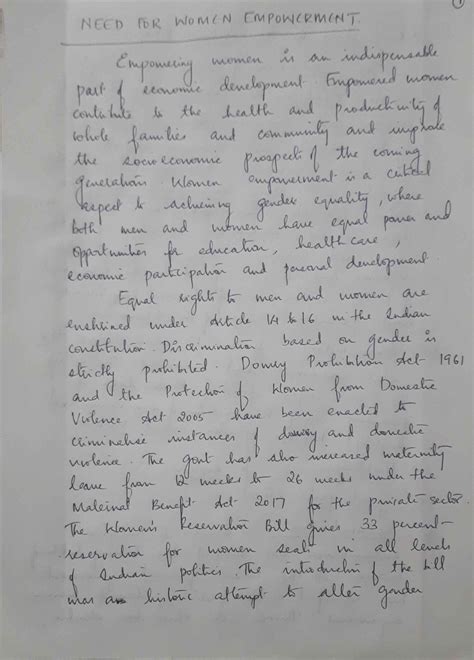 NEED FOR WOMEN EMPOWERMENT.
Empowering women is an indispensable
part of economic development. Empowered women
contribute to the health and productivity of
whole families and community and improve
the socioeconomic prospects of the coming
generation. Women empowerment is a critical
aspect to achieving gender equality, where
both men and women have equal power and
opportunities for education, health care,
economic participation and personal development
Equal rights to men and women are
enshrined under Article 14 to 16 in the Indian
constitution. Discrimination based on gender is
strictly prohibited. Dowry Prohibition Act 1961
and the Protection of Women from Domestic
Violence Act 2005 have been enacted to
criminalise instances of dowry and domestic
violence. The govt has also increased maternity
leave from 12 weeks to 26 weeks under the
Maternal Benefit Act 2017 for the private sector.
The Women's Reservation Bill gives 33 percent
reservation for women seats in all levels
of Indian politics. The introduction of the bill
was an historic attempt to alter gender